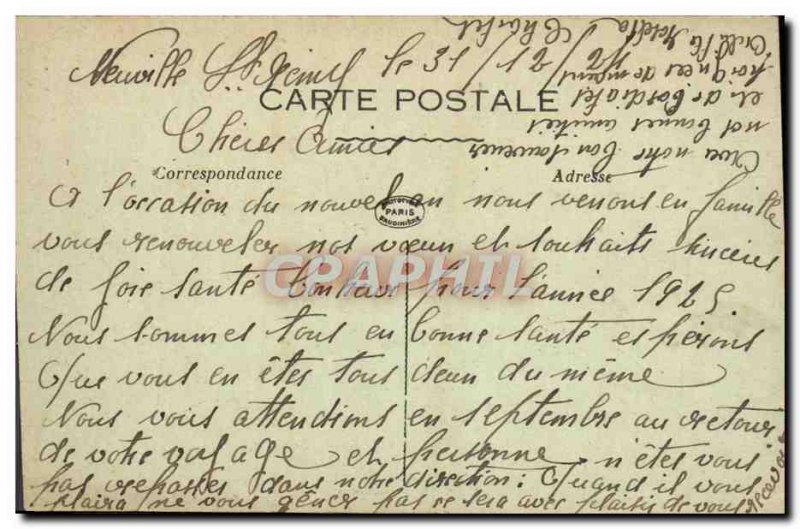 Neuville St Remy le 31/12/24
CARTE POSTALE
Chères Amies
Correspondance
Adresse
A l'occasion du nouvel an nous venons en famille
vous renouveler nos vœux et souhaits sincères
de joie santé bonheur pour l'année 1925
Nous sommes tous en bonne santé espérons
que vous en êtes tous deux du même
Nous vous attendions en septembre au retour
de votre voyage et personne n'êtes vous
pas repassés dans notre direction : Quand il vous
plaira ne vous gênez pas ce sera avec plaisir de vous
recevoir
Avec notre bon souvenir
nos bonnes amitiés
et de cordiales
poignées de mains
PARIS
CRAPHIL